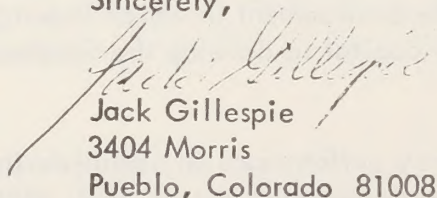 Sincerely,
Jack Gillespie
Jack Gillespie
3404 Morris
Pueblo, Colorado 81008